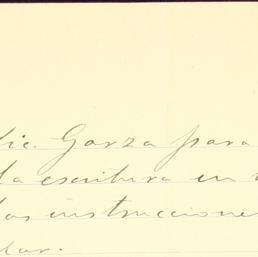 Lic. Garza para
la escritura en
las instruccione
lar.